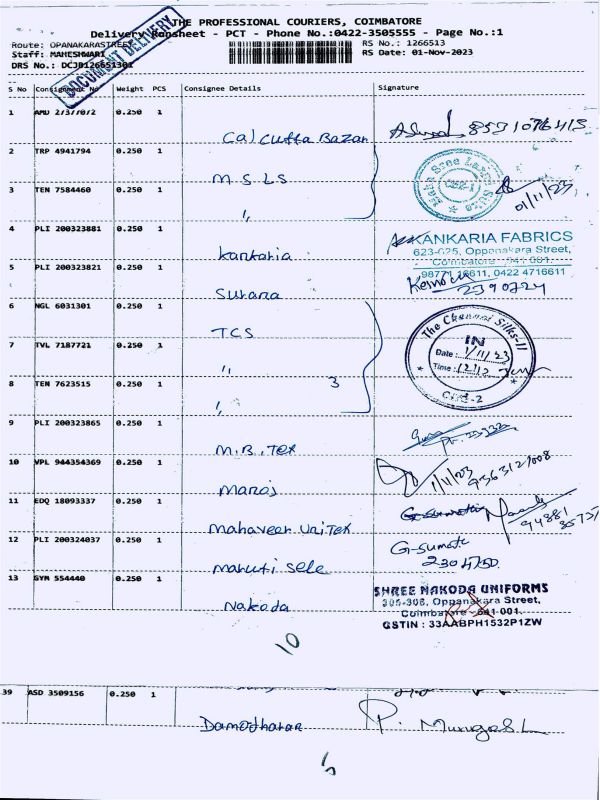 THE PROFESSIONAL COURIERS, COIMBATORE
Delivery Runsheet - PCT - Phone No.:0422-3505555 - Page No.:1
Route: OPANAKARASTREET
RS No.: 1266513
Staff: MAHESHWARI
RS Date: 01-Nov-2023
DRS No.: DCJB126651301
DOCUMENT DELIVERY
S No Consignment No Weight PCS Consignee Details Signature
1 AMD 2/37/072 0.250 1
Calcutta Bazar 8531076415
2 TRP 4941794 0.250 1
M.S.LS
3 TEN 7584460 0.250 1
" 01/11/23
4 PLI 200323881 0.250 1
KANKARIA FABRICS
623-625, Oppanakara Street,
Kankaria Coimbatore - 641 001.
5 PLI 200323821 0.250 1
98771 16611, 0422 4716611
Surana 2390724
6 NGL 6031301 0.250 1
The Chennai Silks-II
TCS IN
7 TVL 7187721 0.250 1
Date: 1/11/23
" 3 Time: 12/12
8 TEN 7623515 0.250 1
"
9 PLI 200323865 0.250 1
M.B.Tex
10 VPL 944354369 0.250 1
Manoj 1/11/23
11 EDQ 18093337 0.250 1
Mahaveer UniTex 94881
12 PLI 200324037 0.250 1
G-sumati
Maruti Sele 2304750
13 GYM 554440 0.250 1
SHREE NAKODA UNIFORMS
305-306, Oppanakara Street,
Nakoda Coimbatore - 641 001.
GSTIN : 33AABPH1532P1ZW
10
39 ASD 3509156 0.250 1
Damodharan P. Murugesh